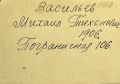 Васильев
Михаил Тихонович
1906.
Пограничная 106.